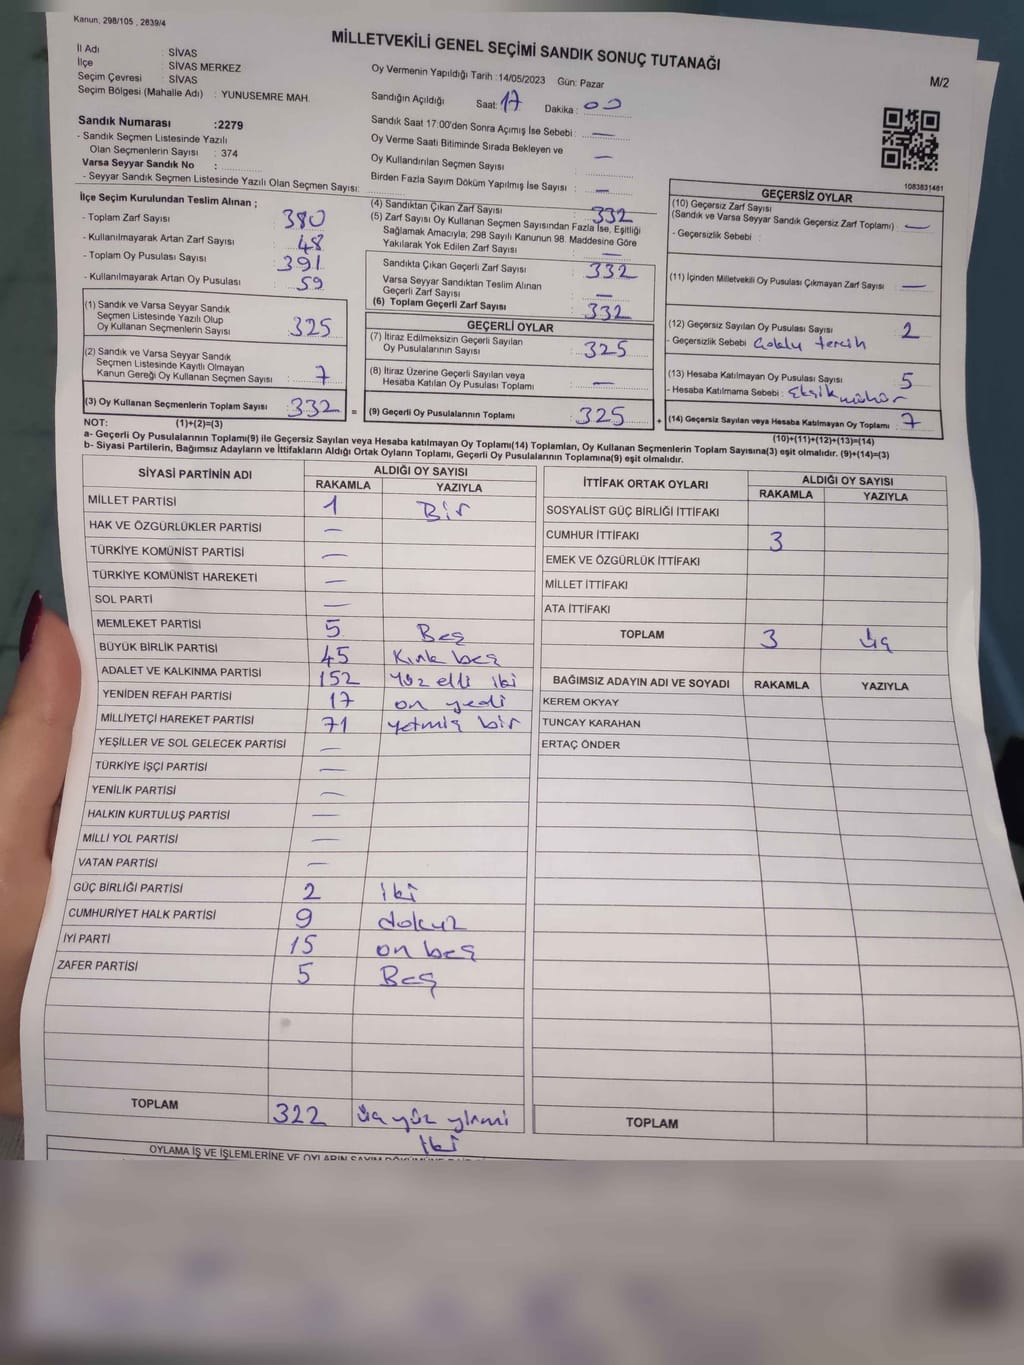 Kanun; 298/105 , 2839/4
MİLLETVEKİLİ GENEL SEÇİMİ SANDIK SONUÇ TUTANAĞI
M/2
İl Adı : SİVAS
İlçe : SİVAS MERKEZ
Seçim Çevresi : SİVAS
Seçim Bölgesi (Mahalle Adı) : YUNUSEMRE MAH.
Sandık Numarası :2279
- Sandık Seçmen Listesinde Yazılı
Olan Seçmenlerin Sayısı : 374
Varsa Seyyar Sandık No :
- Seyyar Sandık Seçmen Listesinde Yazılı Olan Seçmen Sayısı:
Oy Vermenin Yapıldığı Tarih :14/05/2023 Gün: Pazar
Sandığın Açıldığı Saat: 17 Dakika : 00
Sandık Saat 17:00'den Sonra Açımış İse Sebebi : —
Oy Verme Saati Bitiminde Sırada Bekleyen ve
Oy Kullandırılan Seçmen Sayısı —
Birden Fazla Sayım Döküm Yapılmış İse Sayısı : —
1083831461
İlçe Seçim Kurulundan Teslim Alınan ;
- Toplam Zarf Sayısı : 380
- Kullanılmayarak Artan Zarf Sayısı : 48
- Toplam Oy Pusulası Sayısı : 391
- Kullanılmayarak Artan Oy Pusulası : 59
(1) Sandık ve Varsa Seyyar Sandık
Seçmen Listesinde Yazılı Olup
Oy Kullanan Seçmenlerin Sayısı : 325
(2) Sandık ve Varsa Seyyar Sandık
Seçmen Listesinde Kayıtlı Olmayan
Kanun Gereği Oy Kullanan Seçmen Sayısı : 7
(3) Oy Kullanan Seçmenlerin Toplam Sayısı : 332 =
(4) Sandıktan Çıkan Zarf Sayısı : 332
(5) Zarf Sayısı Oy Kullanan Seçmen Sayısından Fazla İse, Eşitliği
Sağlamak Amacıyla; 298 Sayılı Kanunun 98. Maddesine Göre
Yakılarak Yok Edilen Zarf Sayısı : —
Sandıkta Çıkan Geçerli Zarf Sayısı : 332
Varsa Seyyar Sandıktan Teslim Alınan
Geçerli Zarf Sayısı : —
(6) Toplam Geçerli Zarf Sayısı : 332
GEÇERLİ OYLAR
(7) İtiraz Edilmeksizin Geçerli Sayılan
Oy Pusulalarının Sayısı : 325
(8) İtiraz Üzerine Geçerli Sayılan veya
Hesaba Katılan Oy Pusulası Toplamı : —
(9) Geçerli Oy Pusulalarının Toplamı : 325 +
GEÇERSİZ OYLAR
(10) Geçersiz Zarf Sayısı
(Sandık ve Varsa Seyyar Sandık Geçersiz Zarf Toplamı) : —
- Geçersizlik Sebebi :
(11) İçinden Milletvekili Oy Pusulası Çıkmayan Zarf Sayısı : —
(12) Geçersiz Sayılan Oy Pusulası Sayısı : 2
- Geçersizlik Sebebi Çoklu tercih
(13) Hesaba Katılmayan Oy Pusulası Sayısı : 5
- Hesaba Katılmama Sebebi : Eksik mühür
(14) Geçersiz Sayılan veya Hesaba Katılmayan Oy Toplamı : 7
NOT: (1)+(2)=(3)
(10)+(11)+(12)+(13)=(14)
a- Geçerli Oy Pusulalarının Toplamı(9) ile Geçersiz Sayılan veya Hesaba katılmayan Oy Toplamı(14) Toplamları, Oy Kullanan Seçmenlerin Toplam Sayısına(3) eşit olmalıdır. (9)+(14)=(3)
b- Siyasi Partilerin, Bağımsız Adayların ve İttifakların Aldığı Ortak Oyların Toplamı, Geçerli Oy Pusulalarının Toplamına(9) eşit olmalıdır.
SİYASİ PARTİNİN ADI ALDIĞI OY SAYISI
RAKAMLA YAZIYLA
MİLLET PARTİSİ 1 Bir
HAK VE ÖZGÜRLÜKLER PARTİSİ —
TÜRKİYE KOMÜNİST PARTİSİ —
TÜRKİYE KOMÜNİST HAREKETİ —
SOL PARTİ —
MEMLEKET PARTİSİ 5 Beş
BÜYÜK BİRLİK PARTİSİ 45 Kırk beş
ADALET VE KALKINMA PARTİSİ 152 Yüz elli iki
YENİDEN REFAH PARTİSİ 17 on yedi
MİLLİYETÇİ HAREKET PARTİSİ 71 yetmiş bir
YEŞİLLER VE SOL GELECEK PARTİSİ —
TÜRKİYE İŞÇİ PARTİSİ —
YENİLİK PARTİSİ —
HALKIN KURTULUŞ PARTİSİ —
MİLLİ YOL PARTİSİ —
VATAN PARTİSİ —
GÜÇ BİRLİĞİ PARTİSİ 2 iki
CUMHURİYET HALK PARTİSİ 9 dokuz
İYİ PARTİ 15 on beş
ZAFER PARTİSİ 5 Beş
TOPLAM 322 üç yüz yirmi
iki
İTTİFAK ORTAK OYLARI ALDIĞI OY SAYISI
RAKAMLA YAZIYLA
SOSYALİST GÜÇ BİRLİĞİ İTTİFAKI
CUMHUR İTTİFAKI 3
EMEK VE ÖZGÜRLÜK İTTİFAKI
MİLLET İTTİFAKI
ATA İTTİFAKI
TOPLAM 3 üç
BAĞIMSIZ ADAYIN ADI VE SOYADI RAKAMLA YAZIYLA
KEREM OKYAY
TUNCAY KARAHAN
ERTAÇ ÖNDER
TOPLAM
OYLAMA İŞ VE İŞLEMLERİNE VE OYLARIN SAYIM